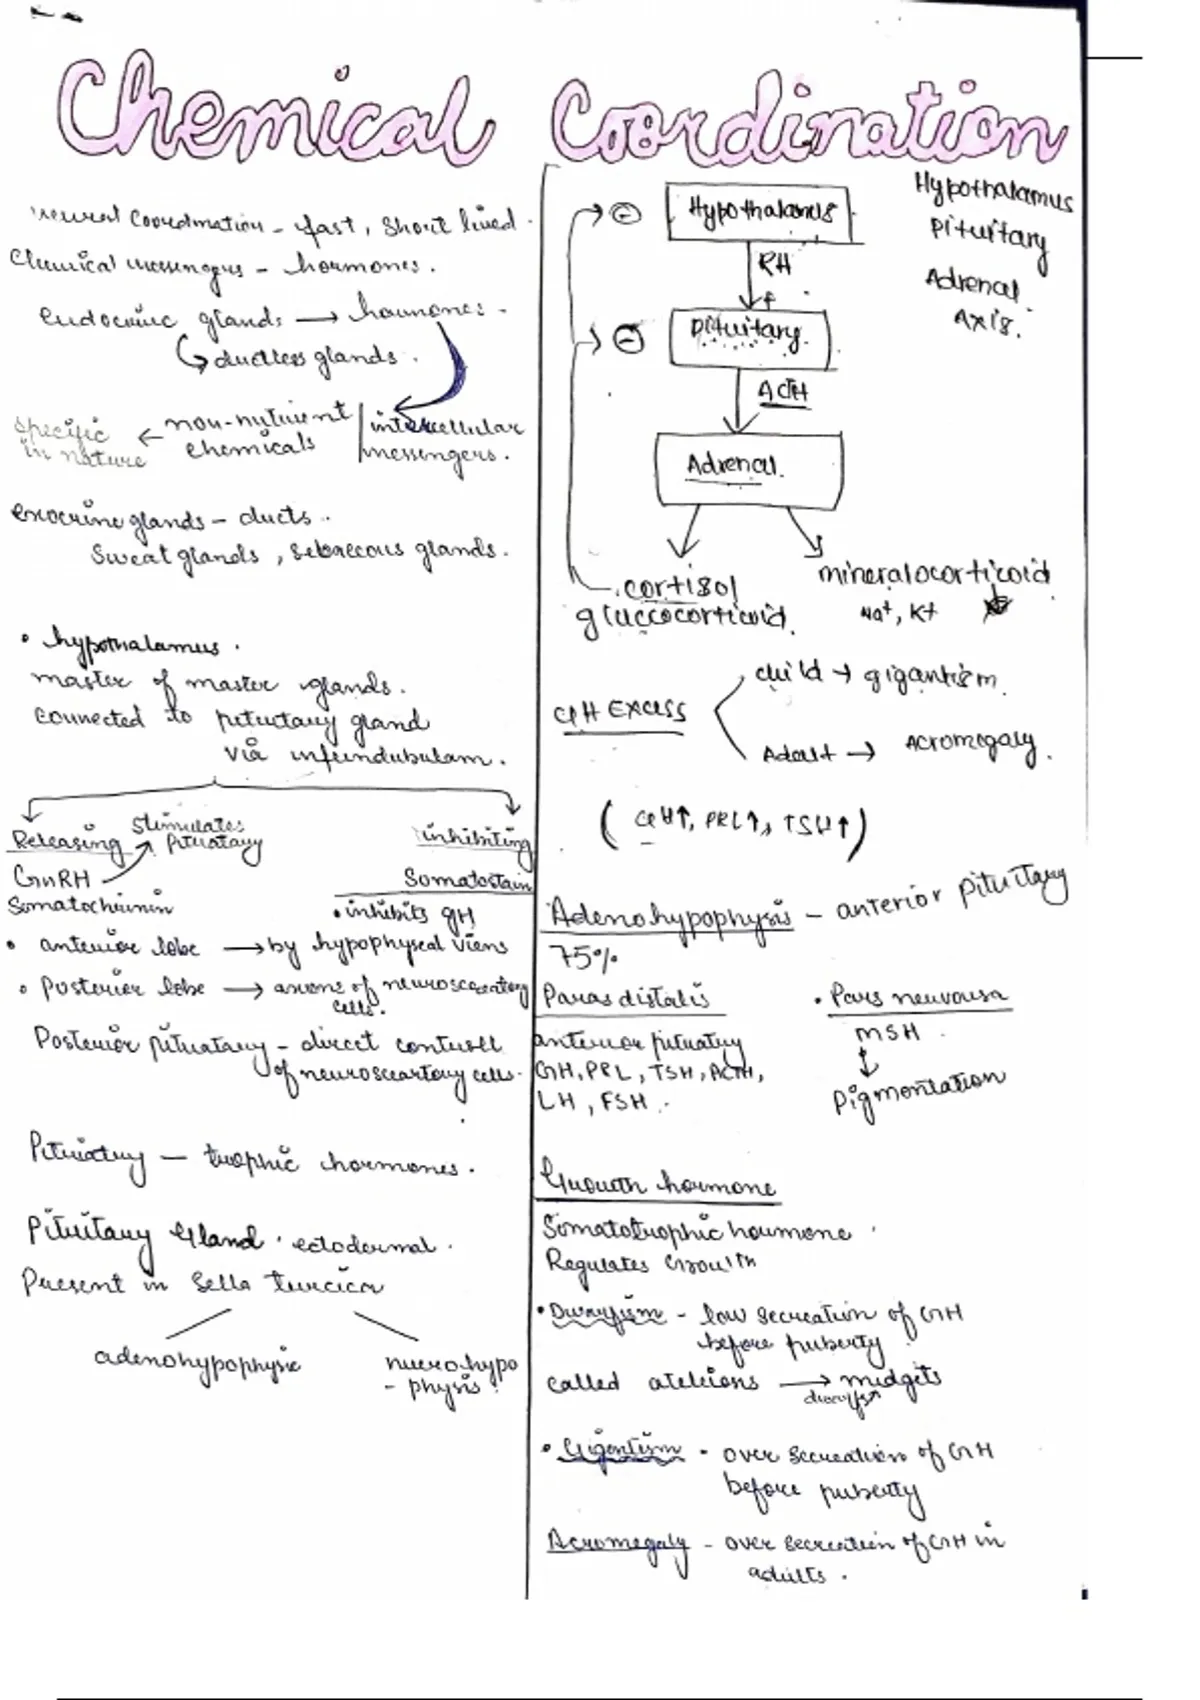 Chemical Coordination
neural Coordination - fast, Short lived.
Chemical messengers - hormones.
endocrine glands → hormones.
ductless glands.
specific ← non-nutrient / intercellular
in nature chemicals messengers.
exocrine glands - ducts.
Sweat glands, sebaceous glands.
• hypothalamus.
master of master glands.
connected to pituitary gland
via infundubulam.
Releasing stimulates
pituatary
GnRH
inhibiting
Somatostain
• inhibits GH
• anterior lobe → by hypophyseal viens
• Posterior lobe → axons of
cells.
Posterior pituatary - direct controll
of cells.
Pituiatary - trophic hormones.
Pituitary Gland. ectodermal.
Present in Sella turcica
adenohypophysis
neurohypo
- physis
Hypothalamus
Pituitary
Adrenal
Axis.
RH
Pituitary
ACTH
Adrenal.
cortisol
glucocorticoid.
mineralocorticoid
Na+, K+
GH Excess
child → gigantism.
Adult → Acromegaly.
(GH↑, PRL↑, TSH↑)
Adenohypophysis - anterior pituitary
75%
Paras distalis
anterior pituatary
GH, PRL, TSH, ACTH,
LH, FSH.
• Pars
MSH
↓
pigmentation
Growth hormone
Somatotrophic hormone
Regulates Growth
• Dwarfism - low secreation of GH
before puberty
called ateleions → midgets
• Gigentism - over secreation of GH
before puberty
Acromegaly - over secreation of GH in
adults.